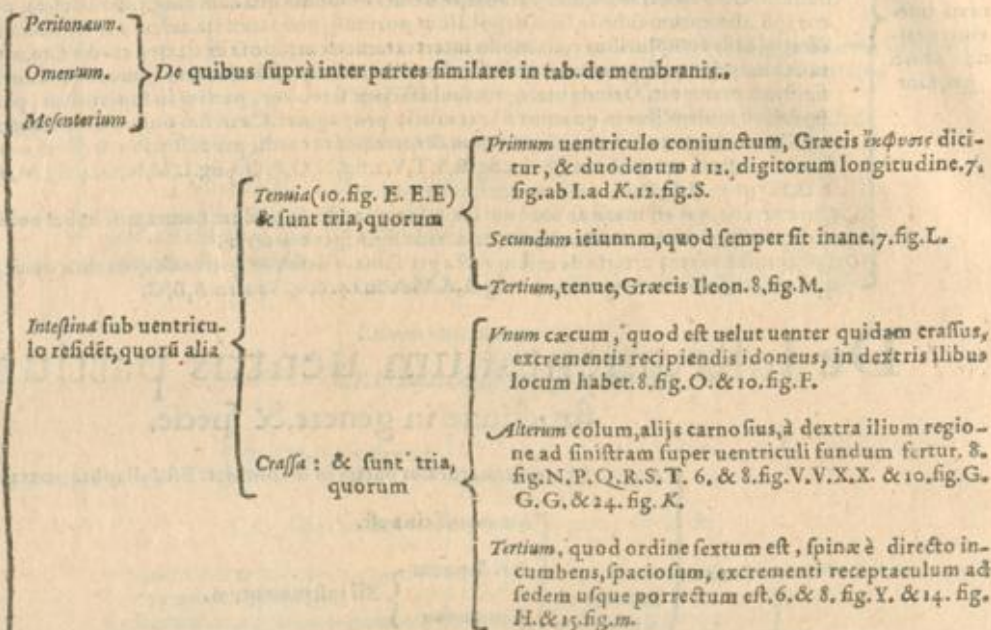 Peritonæum.
Omentum.
Mesenterium
De quibus suprà inter partes similares in tab. de membranis..
Intestina sub uentricu-
lo residēt, quorū alia
Tenuia (10. fig. E. E. E)
& sunt tria, quorum
Primum uentriculo coniunctum, Græcis ἔκφυσις dici-
tur, & duodenum à 12. digitorum longitudine. 7.
fig. ab I. ad K. 12. fig. S.
Secundum ieiunnm, quod semper sit inane, 7. fig. L.
Tertium, tenue, Græcis Ileon. 8. fig. M.
Crassa: & sunt tria,
quorum
Vnum cæcum, quod est uelut uenter quidam crassus,
excrementis recipiendis idoneus, in dextris ilibus
locum habet. 8. fig. O. & 10. fig. F.
Alterum colum, alijs carnosius, à dextra ilium regio-
ne ad sinistram super uentriculi fundum fertur. 8.
fig. N. P. Q. R. S. T. 6. & 8. fig. V. V. X. X. & 10. fig. G.
G. G. & 24. fig. K.
Tertium, quod ordine sextum est, spinæ è directo in-
cumbens, spaciosum, excrementi receptaculum ad
sedem usque porrectum est. 6. & 8. fig. Y. & 14. fig.
H. & 15. fig. m.